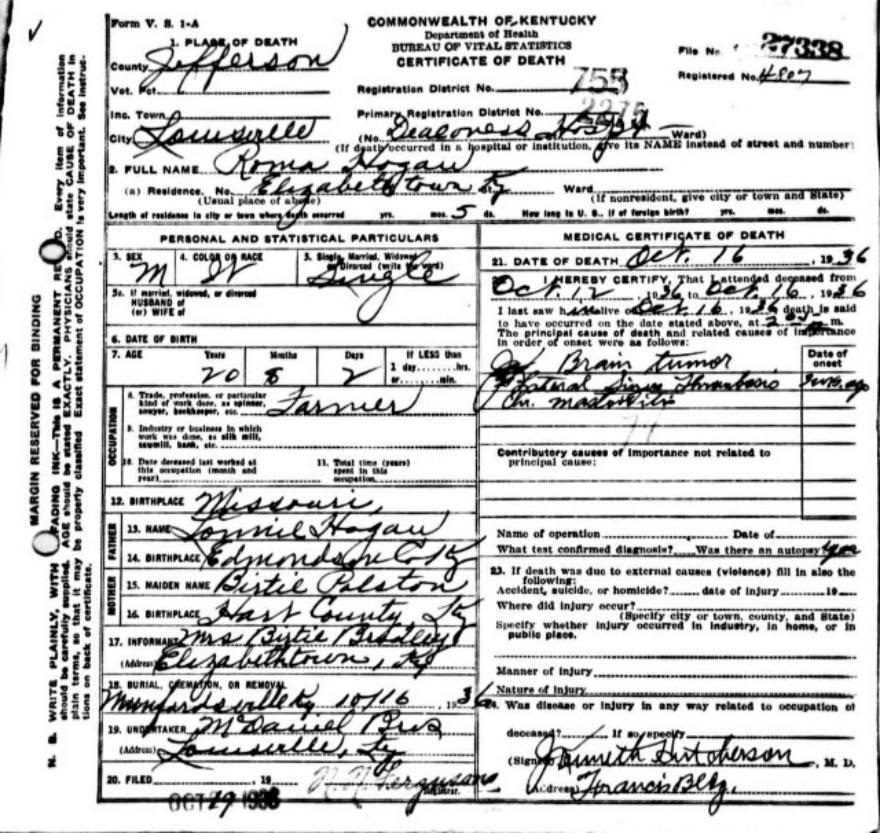 Form V. S. 1-A
COMMONWEALTH OF KENTUCKY
Department of Health
BUREAU OF VITAL STATISTICS
CERTIFICATE OF DEATH
File No. 27338
Registered No. 4807
1. PLACE OF DEATH
County Jefferson
Vot. Pct.
Inc. Town
City Louisville
Registration District No. 755
Primary Registration District No. 2275
(No. Deaconess Hospt Ward)
(If death occurred in a hospital or institution, give its NAME instead of street and number)
2. FULL NAME Roma Hogan
(a) Residence. No. Elizabethtown Ky Ward
(Usual place of abode) (If nonresident, give city or town and State)
Length of residence in city or town where death occurred yrs. mos. 5 ds. How long in U. S., if of foreign birth? yrs. mos. ds.
PERSONAL AND STATISTICAL PARTICULARS
3. SEX M
4. COLOR OR RACE W
5. Single, Married, Widowed or Divorced (write the word) Single
5a. If married, widowed, or divorced
HUSBAND of
(or) WIFE of
6. DATE OF BIRTH
7. AGE Years Months Days If LESS than
20 8 2 1 day, hrs.
or min.
OCCUPATION
8. Trade, profession, or particular
kind of work done, as spinner,
sawyer, bookkeeper, etc. Farmer
9. Industry or business in which
work was done, as silk mill,
sawmill, bank, etc.
10. Date deceased last worked at
this occupation (month and
year)
11. Total time (years)
spent in this
occupation
12. BIRTHPLACE Missouri,
FATHER
13. NAME Lonnie Hogan
14. BIRTHPLACE Edmondson Co Ky
MOTHER
15. MAIDEN NAME Birtie Ralston
16. BIRTHPLACE Hart County Ky
17. INFORMANT Mrs Birtie Bradley
(Address) Elizabethtown, Ky
18. BURIAL, CREMATION, OR REMOVAL
Munfordsville Ky 10/16, 1936
19. UNDERTAKER McDaniel Bros
(Address) Louisville, Ky
20. FILED 19
OCT 19 1936
Ferguson
Registrar.
MEDICAL CERTIFICATE OF DEATH
21. DATE OF DEATH Oct. 16, 1936
I HEREBY CERTIFY, That I attended deceased from
Oct. 12, 1936 to Oct. 16, 1936
I last saw him alive on Oct. 16, 1936 death is said
to have occurred on the date stated above, at m.
The principal cause of death and related causes of importance
in order of onset were as follows:
Date of
onset
Brain tumor
Lateral Sinus Thrombosis
Chr. mastoiditis
Contributory causes of importance not related to
principal cause:
Name of operation Date of
What test confirmed diagnosis? Was there an autopsy? yes
23. If death was due to external causes (violence) fill in also the
following:
Accident, suicide, or homicide? date of injury 19
Where did injury occur?
(Specify city or town, county, and State)
Specify whether injury occurred in industry, in home, or in
public place.
Manner of injury
Nature of injury
24. Was disease or injury in any way related to occupation of
deceased? If so, specify
(Signed) J Kenneth Hutcherson, M. D.
Address Francis Bldg.
MARGIN RESERVED FOR BINDING
N. B. WRITE PLAINLY, WITH FADING INK—THIS IS A PERMANENT RECORD. Every item of information
should be carefully supplied. AGE should be stated EXACTLY. PHYSICIANS should state CAUSE OF DEATH in
plain terms, so that it may be properly classified. Exact statement of OCCUPATION is very important. See instruc-
tions on back of certificate.